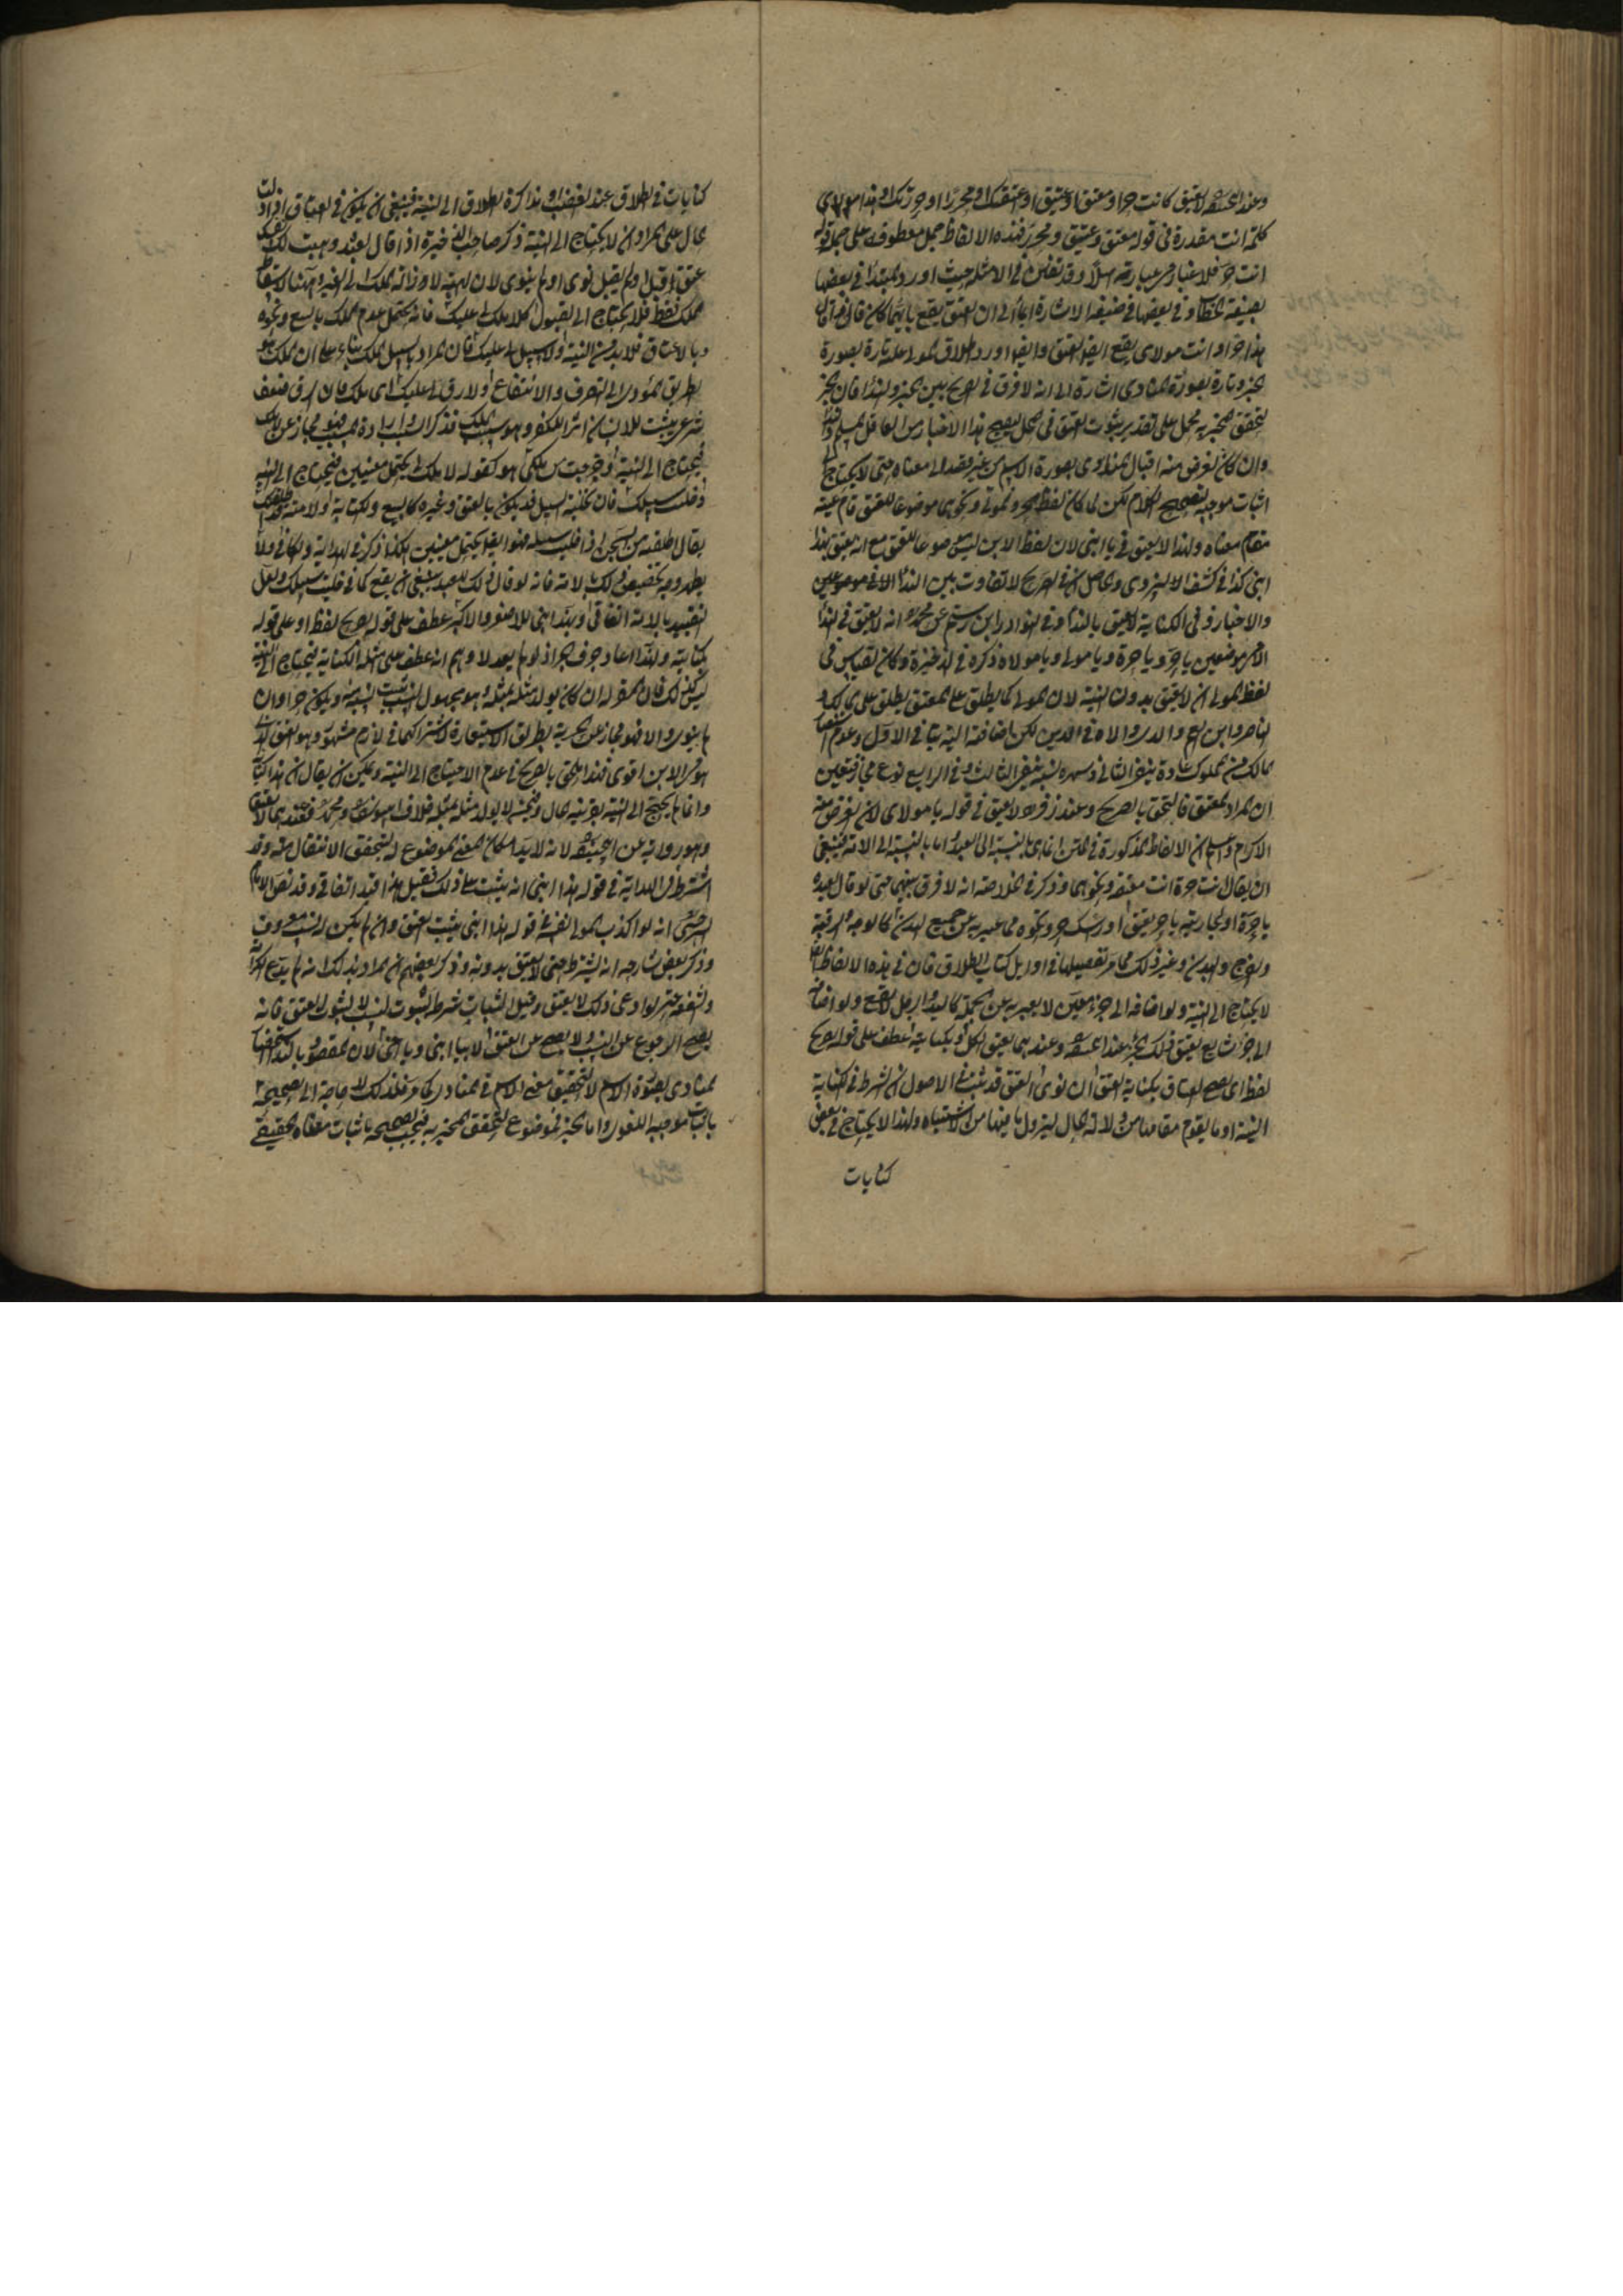 وعند ابى حنيفة لا يعتق كانت حر او معتق او عتيق او اعتقتك او محرر او حررتك او هذا مولاى
كلمة انت مقدرة فى قوله معتق وعتيق ومحرر فهذه الالفاظ جمل معطوفة على جملة قوله
انت حر فلا غبار فى عبارته اصلا وقد تفنن فى الامثلة حيث اورد المبتدأ فى بعضها
بصيغة الخطاب وفى بعضها فى صيغة الاشارة ايماء الى ان العتق يقع بايهما كان فان من قال
هذا حر او انت مولاى يقع ايضا العتق وايضا اورد اطلاق المولى عليه تارة بصورة
الخبر وتارة بصورة المنادى اشارة الى انه لا فرق فى الصريح بين الخبر والنداء فان الخبر
لتحقق المخبر به يحمل على تقدير ثبوت العتق فى المحل ليصح هذا الاخبار من العاقل المسلم والنداء
وان كان الغرض منه اقبال المنادى بصورة الاسم من غير قصد الى معناه حتى لا يحتاج الى
اثبات موجبه لتصحيح الكلام لكن لما كان لفظ الحر والمولى ونحوهما موضوعا للعتق قام عينه
مقام معناه ولهذا لا يعتق فى يا ابنى لان لفظ الابن ليس موضوعا للعتق مع انه يعتق بهذا
ابنى كذا فى كشف البزدوى والحاصل ان فى الصريح لا تفاوت بين النداء الا فى موضعين
والاخبار وفى الكناية لا يعتق بالنداء وفى نوادر ابن رستم عن محمد انه لا يعتق فى النداء
الا فى موضعين يا حر ويا حرة ويا مولى ويا مولاه ذكره فى الذخيرة وكان القياس فى
لفظ المولى ان لا يعتق بدون النية لان المولى كما يطلق على المعتق يطلق على المالك و
الناصر وابن العم والموالاة فى الدين لكن اضافته اليه ينافى الاول وعدم
مالك من المملوك عادة ينفى الثانى وشهرة نسبه ينفى الثالث وفى الرابع نوع مجاز فتعين
ان المراد المعتق فالتحق بالصريح وعند زفر لا يعتق فى قوله يا مولاى لان الغرض منه
الاكرام واعلم ان الالفاظ المذكورة فى المتن انما هى بالنسبة الى العبد اما بالنسبة الى الامة فينبغى
ان يقال انت حرة انت معتقة ونحوهما وذكر فى الخلاصة انه لا فرق بينهما حتى لو قال لعبده
يا حرة او لجاريته يا حر يعتق او رأسك حر ونحوه مما عبر به عن جميع البدن كالوجه والرقبة
والفرج والبدن وغير ذلك مما مر تفصيلها فى اوائل كتاب الطلاق فان فى هذه الالفاظ
لا يحتاج الى النية ولو اضافه الى جزء معين لا يعبر به عن الجملة كاليد والرجل لا يقع ولو اضافه
الى جزء شايع يعتق ذلك الجزء عند ابى حنيفة وعندهما يعتق الكل او بكناية عطف على قوله بصريح
لفظ اى يصح العتاق بكناية العتق ان نوى العتق قد ثبت فى الاصول ان الشرط فى الكناية
النية او ما يقوم مقامها من دلالة الحال ليزول ما فيها من الاشتباه ولهذا لا يحتاج فى بعض
كنايات
كنايات فى الطلاق عند الغضب او مذاكرة الطلاق الى النية فينبغى ان يكون فى العتاق اذا دلت
الحال على المراد ان لا يحتاج الى النية ذكر صاحب الذخيرة اذا قال لعبده وهبت لك نفسك
عتق قبل او لم يقبل نوى او لم ينوى لان الهبة لازالة الملك الى الغير وههنا لاسقاط
الملك فقط فلا يحتاج الى القبول كلا ملك لى عليك فانه يحتمل عدم الملك بالبيع ونحوه
وبالاعتاق فلا بد من النية ولا سبيل لى عليك فان المراد بالسبيل الملك بناء على ان الملك هو
الطريق المؤدى الى التصرف والانتفاع او لا رق لى عليك اى ملك فان الرق ضعف
شرعى يثبت للانسان اثر للكفر وهو سبب الملك فذكر السبب وارادة المسبب فهو مجاز عن الملك
فيحتاج الى النية او خرجت من ملكى هو كقوله لا ملك لى يحتمل معنيين فيحتاج الى النية
وخليت سبيلك فان تخلية السبيل قد يكون بالعتق وغيره كالبيع والكتابة او لامته قد اطلقتك
يقال اطلقته من السجن اذا خليت سبيله فهو ايضا يحتمل معنيين هكذا ذكر فى الهداية والكافى ولا
يظهر وجه تخصيص ذلك بالامة فانه لو قال ذلك للعبد ينبغى ان يقع كما فى خليت سبيلك ولعل
التقييد بالامة اتفاقى او بهذا ابنى للاصغر والاكبر عطف على قوله بصريح لفظ او على قوله
بكناية ولهذا اعاد حرف الجر اذ لو لم يعد لا وهم انه عطف على امثلة الكناية فيحتاج الى النية
ليس كذلك فان المقر له ان كان يولد مثله لمثله وهو مجهول النسب يثبت النسب منه ويكون حرا وان
لم ينو والا فهو مجاز عن الحرية بطريق الاستعارة لاشتراكهما فى لازم مشهور وهو العتق الذى
هو فى الابن اقوى فهذا ملحق بالصريح فى عدم الاحتياج الى النية ويمكن ان يقال ان هذا كناية
وانما لم يحتج الى النية لقرينة الحال وفيمن لا يولد مثله لمثله خلاف ابى يوسف ومحمد فعندهما لا يعتق
وهو رواية عن ابى حنيفة لانه لا بد من امكان المعنى الموضوع له ليتحقق الانتقال منه وقد
اشترط فى الهداية فى قوله هذا ابنى انه يثبت على ذلك فقيل هذا قيد اتفاقى وقد نص الامام
السرخسى انه لو اكذب المولى نفسه فى قوله هذا ابنى يثبت العتق وان لم يكن له نسب معروف
وذكر بعض شارحيه انه يشترط حتى لا يعتق بدونه وذكر بعضهم ان المراد بذلك انه لم يدع الكرامة
والشفقة حتى لو ادعى ذلك لا يعتق وقيل الثبات شرط لثبوت النسب لا لثبوت العتق فانه
يصح الرجوع عن النسب ولا يصح عن العتق لا بيا ابنى ويا اخى لان المقصود بالنداء استحضار
المنادى بصورة الاسم لا لتحقيق معنى الاسم فى المنادى كما مر فلذلك لا حاجة الى تصحيحه
باثبات موجبه اللغوى واما الخبر فموضوع لتحقق المخبر به فيجب تصحيحه باثبات معناه الحقيقى